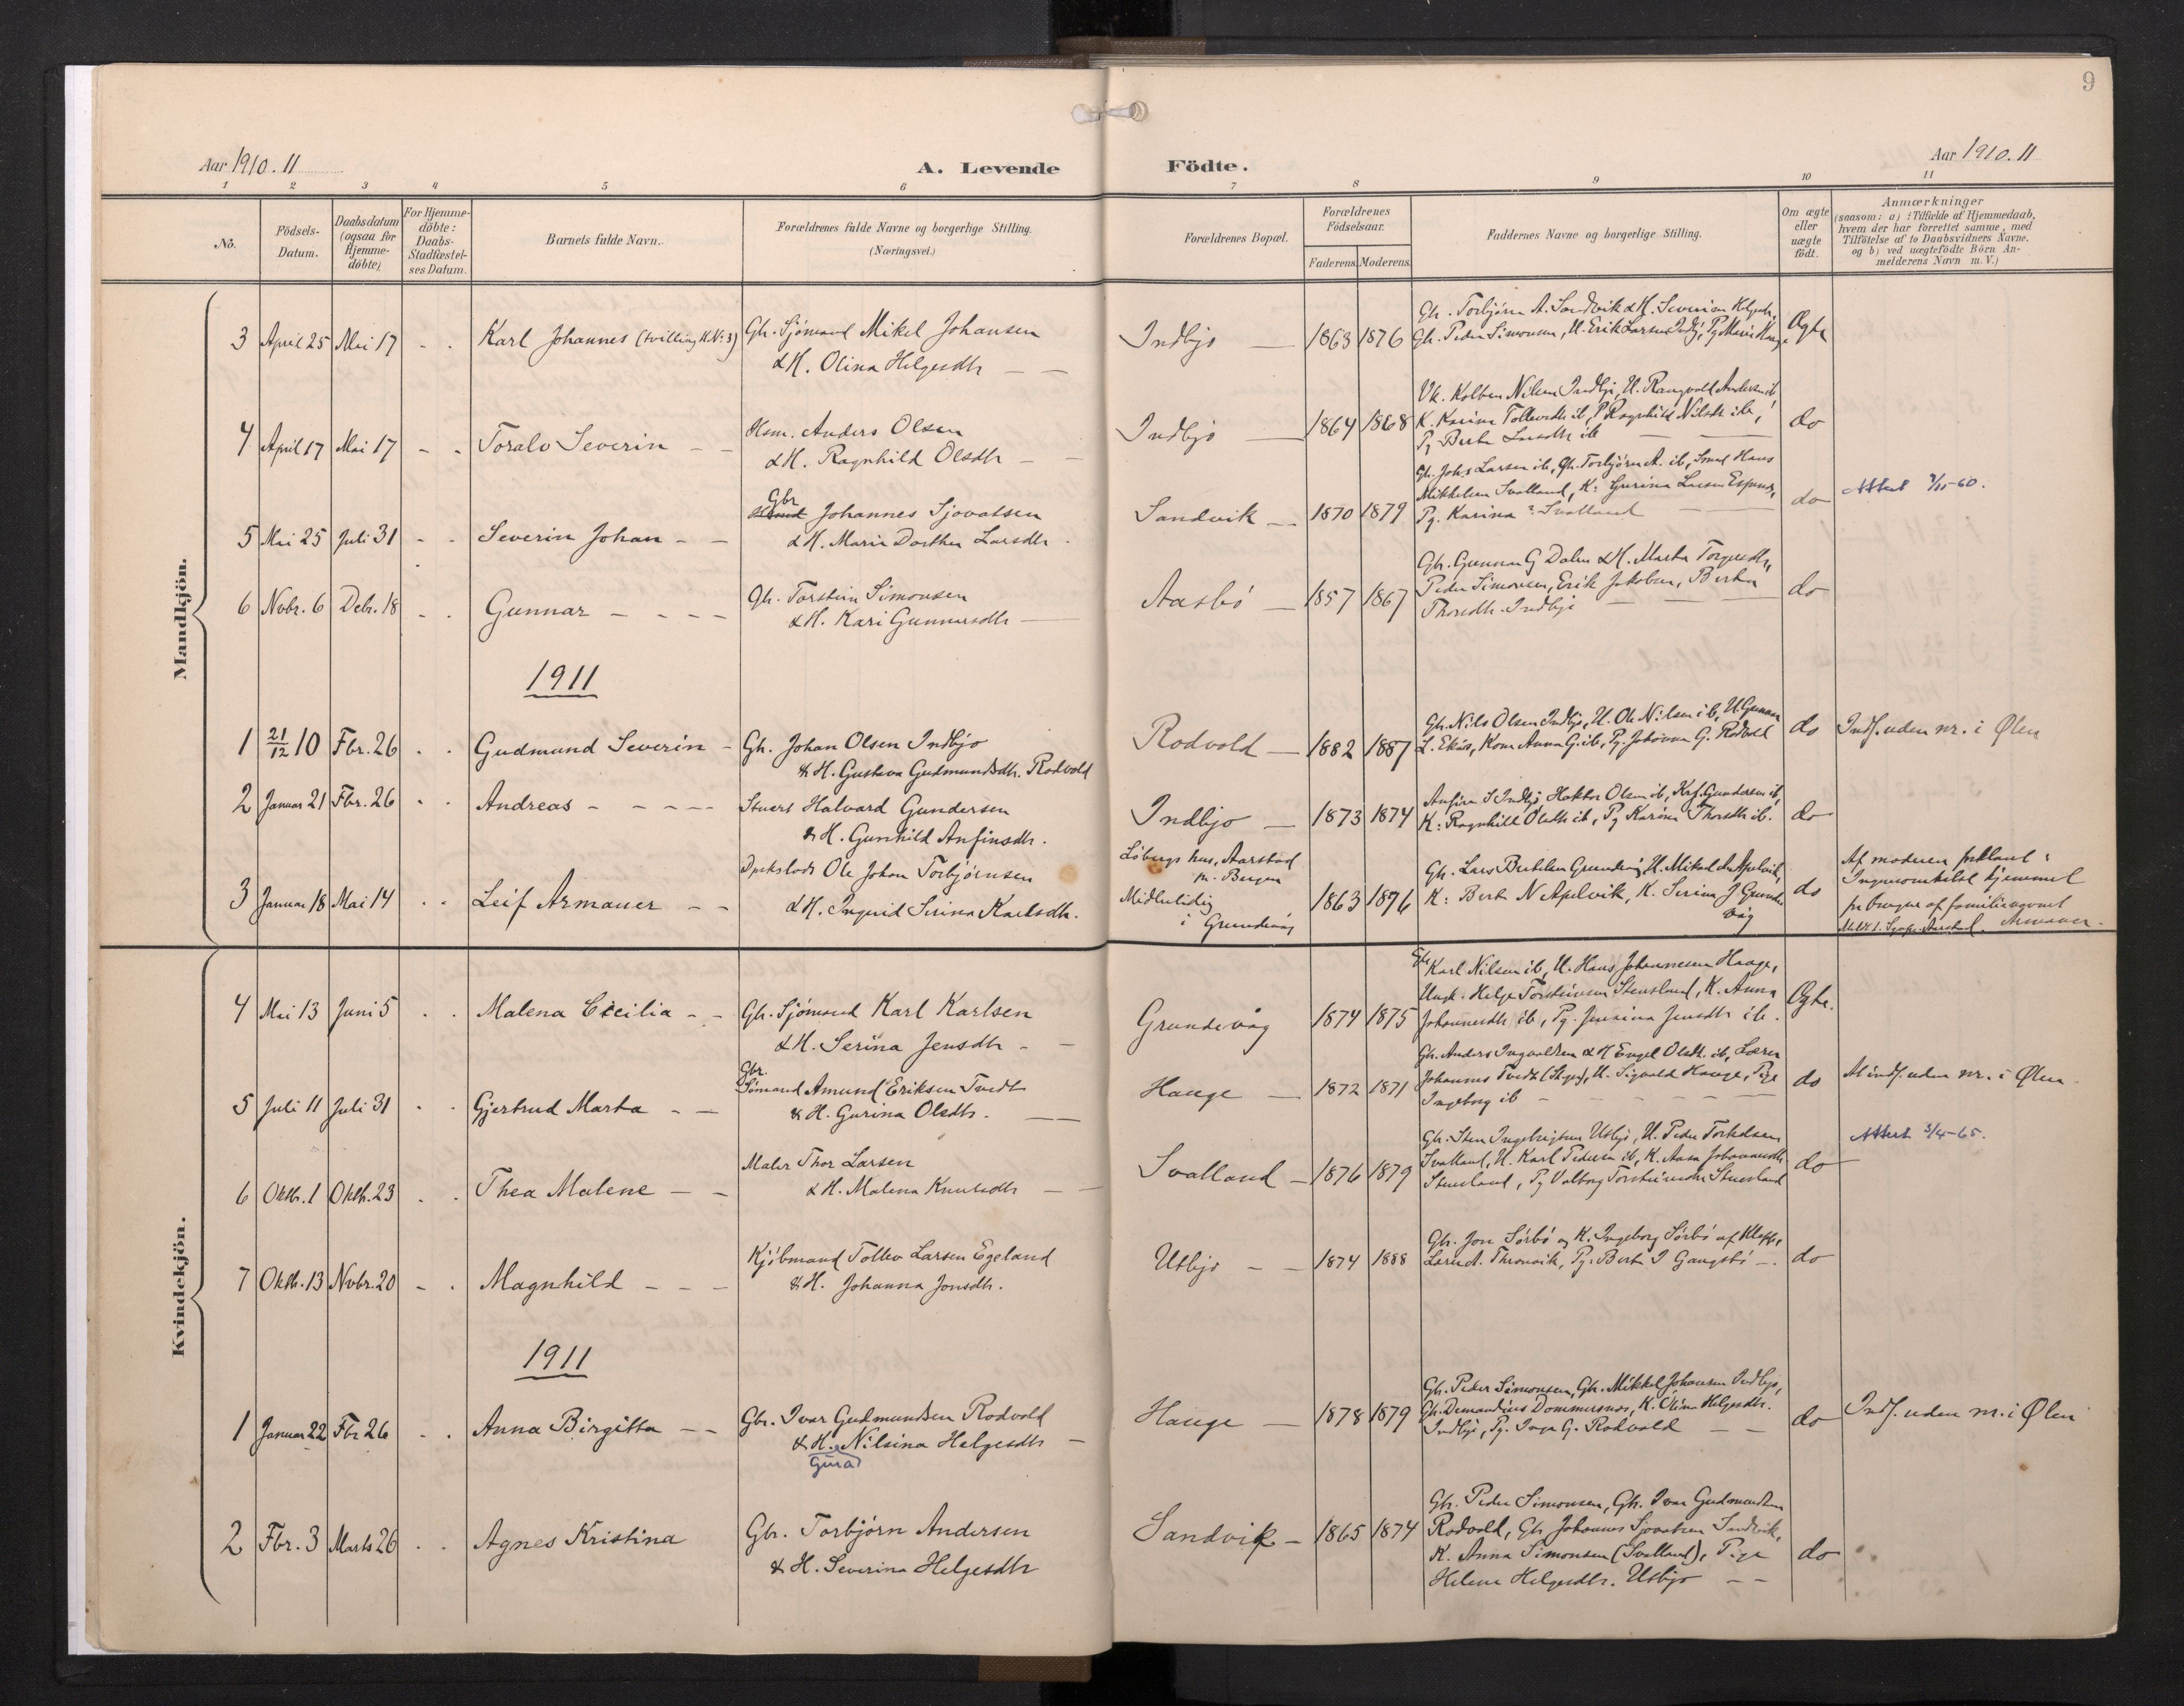 9
Aar 1910.11
A. Levende Födte.
Aar 1910.11
1 2 3 4 5 6 7 8 9 10 11
No.
Födsels-Datum.
Daabsdatum (ogsaa for Hjemme-döbte)
For Hjemme-döbte: Daabs-Stadfæstel-ses Datum.
Barnets fulde Navn.
Forældrenes fulde Navne og borgerlige Stilling. (Næringsvei.)
Forældrenes Bopæl.
Forældrenes Födselsaar.
Faderens. Moderens.
Faddernes Navne og borgerlige Stilling.
Om ægte eller uægte födt.
Anmærkninger
(saasom: a) i Tilfælde af Hjemmedaab,
hvem der har forrettet samme, med
Tilföielse af to Daabsvidners Navne.
og b) ved uægtefödte Börn An-
melderens Navn m. V.)
Mandkjön.
3 April 25 Mai 17 Karl Johannes (tvilling K.No. 3) Gbr. Sjömand Mikel Johansen
& H. Olina Helgesdtr
Indbjo 1863 1876
Gbr. Torbjörn A. Sandvik & H. Severine Helgesdtr,
Gbr. Peder Simonsen, U. Erik Larsen Indbj,
Ægte
4 April 17 Mai 17 Toralv Severin Hsm. Anders Olsen
& H. Ragnhild Olsdtr
Indbjo 1864 1868
Nilsen Indbjo, U. Rangvald Andersen ib,
K. Karina ib, P. Ragnhild Nilsdtr ib,
Pg Berta Larsdtr ib
do
5 Mai 25 Juli 31 Severin Johan Gbr Johannes Sjovatsen
& H. Marie Dorthea Larsdtr
Sandvik 1870 1879
Gbr. Johs Larsen ib, Gbr. Torbjörn A. ib, Hans
Mikkelsen Svalland, K: Gurina Larsen
Pg. Karina ? Svalland
do
Attest 7/11-60.
6 Nobr. 6 Deb. 18 Gunnar Gbr. Torstein Simonsen
& H. Kari Gunnarsdtr
Aasbö 1857 1867
Gbr. Gunnar G Dalen & H. Marta Torgersdtr,
Peder Simonsen, Erik Jakobsen, Berta
Thoresdtr. Indbjo
do
1911
1 21/12 10 Fbr. 26 Gudmund Severin Gbr. Johan Olsen Indbjo
& H. Gustava Gudmundsdtr. Rodvold
Rodvold 1882 1887
Gbr. Nils Olsen Indbjo, U. Ole Nilsen ib, U. Gunnar
L. Ekås, Kone Anna G. ib, Pg. Johanna G. Rodvold
do
Indf. uden nr. i Ølen
2 Januar 21 Fbr. 26 Andreas Stuert Halvard Gundersen
& H. Gunhild Anfinsdtr.
Indbjo 1873 1874
Anfinn S Indbjo, Haktor Olsen ib, Gundersen ib,
K: Ragnhild Olsdtr ib, Pg Karina Thorsdtr ib.
do
3 Januar 18 Mai 14 Leif Armauer Ole Johan Torbjörnsen
& H. Ingrid Sirina Karlsdtr.
Löbergs hus, Aarstad
pr. Bergen
Midlertidig
i Grundevåg
1863 1876
Gbr. Lars Bertelsen Grundevåg, U. Mikal A. Apelvik,
K: Berta N Apelvik, K. Serina J Grunde
våg
do
Af moderen forklaret:
Ingensomhelst hjemmel
for brugen af familienavnet
Armauer.
Kvindekjön.
4 Mai 13 Juni 5 Malena Cecilia Gbr. Sjömand Karl Karlsen
& H. Serina Jensdtr
Grundevåg 1874 1875
Gbr Karl Nilsen ib, U. Hans Johannesen Hauge,
Ungk. Helge Torsteinsen Stensland, K. Anna
Johannesdtr ib, Pg. Jensina Jensdtr ib.
Ægte.
5 Juli 11 Juli 31 Gjertrud Marta Gbr. Sömand Amund Eriksen Tvedt
& H. Gurina Olsdtr.
Hauge 1872 1871
Gbr. Anders Ingvaldsen & H Engel Olsdtr. ib, Lærer
Johannes Tvedt (Skjold), U. Sigvald Hauge, Pige
Ingeborg ib
do
indf. uden nr. i Ølen
6 Oktb. 1 Oktb. 23 Thea Malene Maler Thor Larsen
& H. Malena Knutsdtr
Svalland 1876 1879
Gbr. Sten Ingebrigtsen Utbjo, U. Peder Torkelsen
Svalland, U. Karl Pedersen ib, K. Aasa Johannesdtr
Stensland, Pg Valborg Torsteinsdtr Stensland
do
Attest 3/4-65.
7 Oktb. 13 Nvbr. 20 Magnhild Kjöbmand Tollev Larsen Egeland
& H. Johanna Jonsdtr.
Utbjo 1874 1888
Gbr. Jon Sörbö og K. Ingeborg Sörbö af Klepp,
Lærer A. Thronvik, Pg. Berta I Gangstö
do
1911
1 Januar 22 Fbr 26 Anna Birgitta Gbr. Ivar Gudmundsen Rodvold
& H. Nilsina Helgesdtr
Guro
Hauge 1878 1879
Gbr. Peder Simonsen, Gbr. Mikkel Johansen Indbjo,
Gbr. Demandius Dommersnes, K. Olina Helgesdtr.
Indbjo, Pg. Inga G. Rodvold
do
Indf. uden nr. i Ølen
2 Fbr. 3 Marts 26 Agnes Kristina Gbr. Torbjörn Andersen
& H. Severina Helgesdtr
Sandvik 1865 1874
Gbr. Peder Simonsen, Gbr. Ivar Gudmundsen
Rodvold, Gbr Johannes Sjovatsen Sandvik,
K. Anna Simonsen (Svalland), Pige
Helene Helgesdtr. Utbjo
do